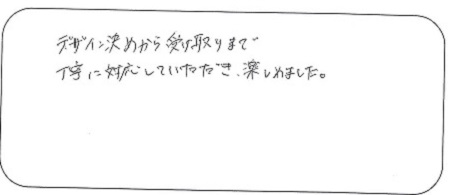 デザイン決めから受け取りまで
丁寧に対応していただき、楽しめました。